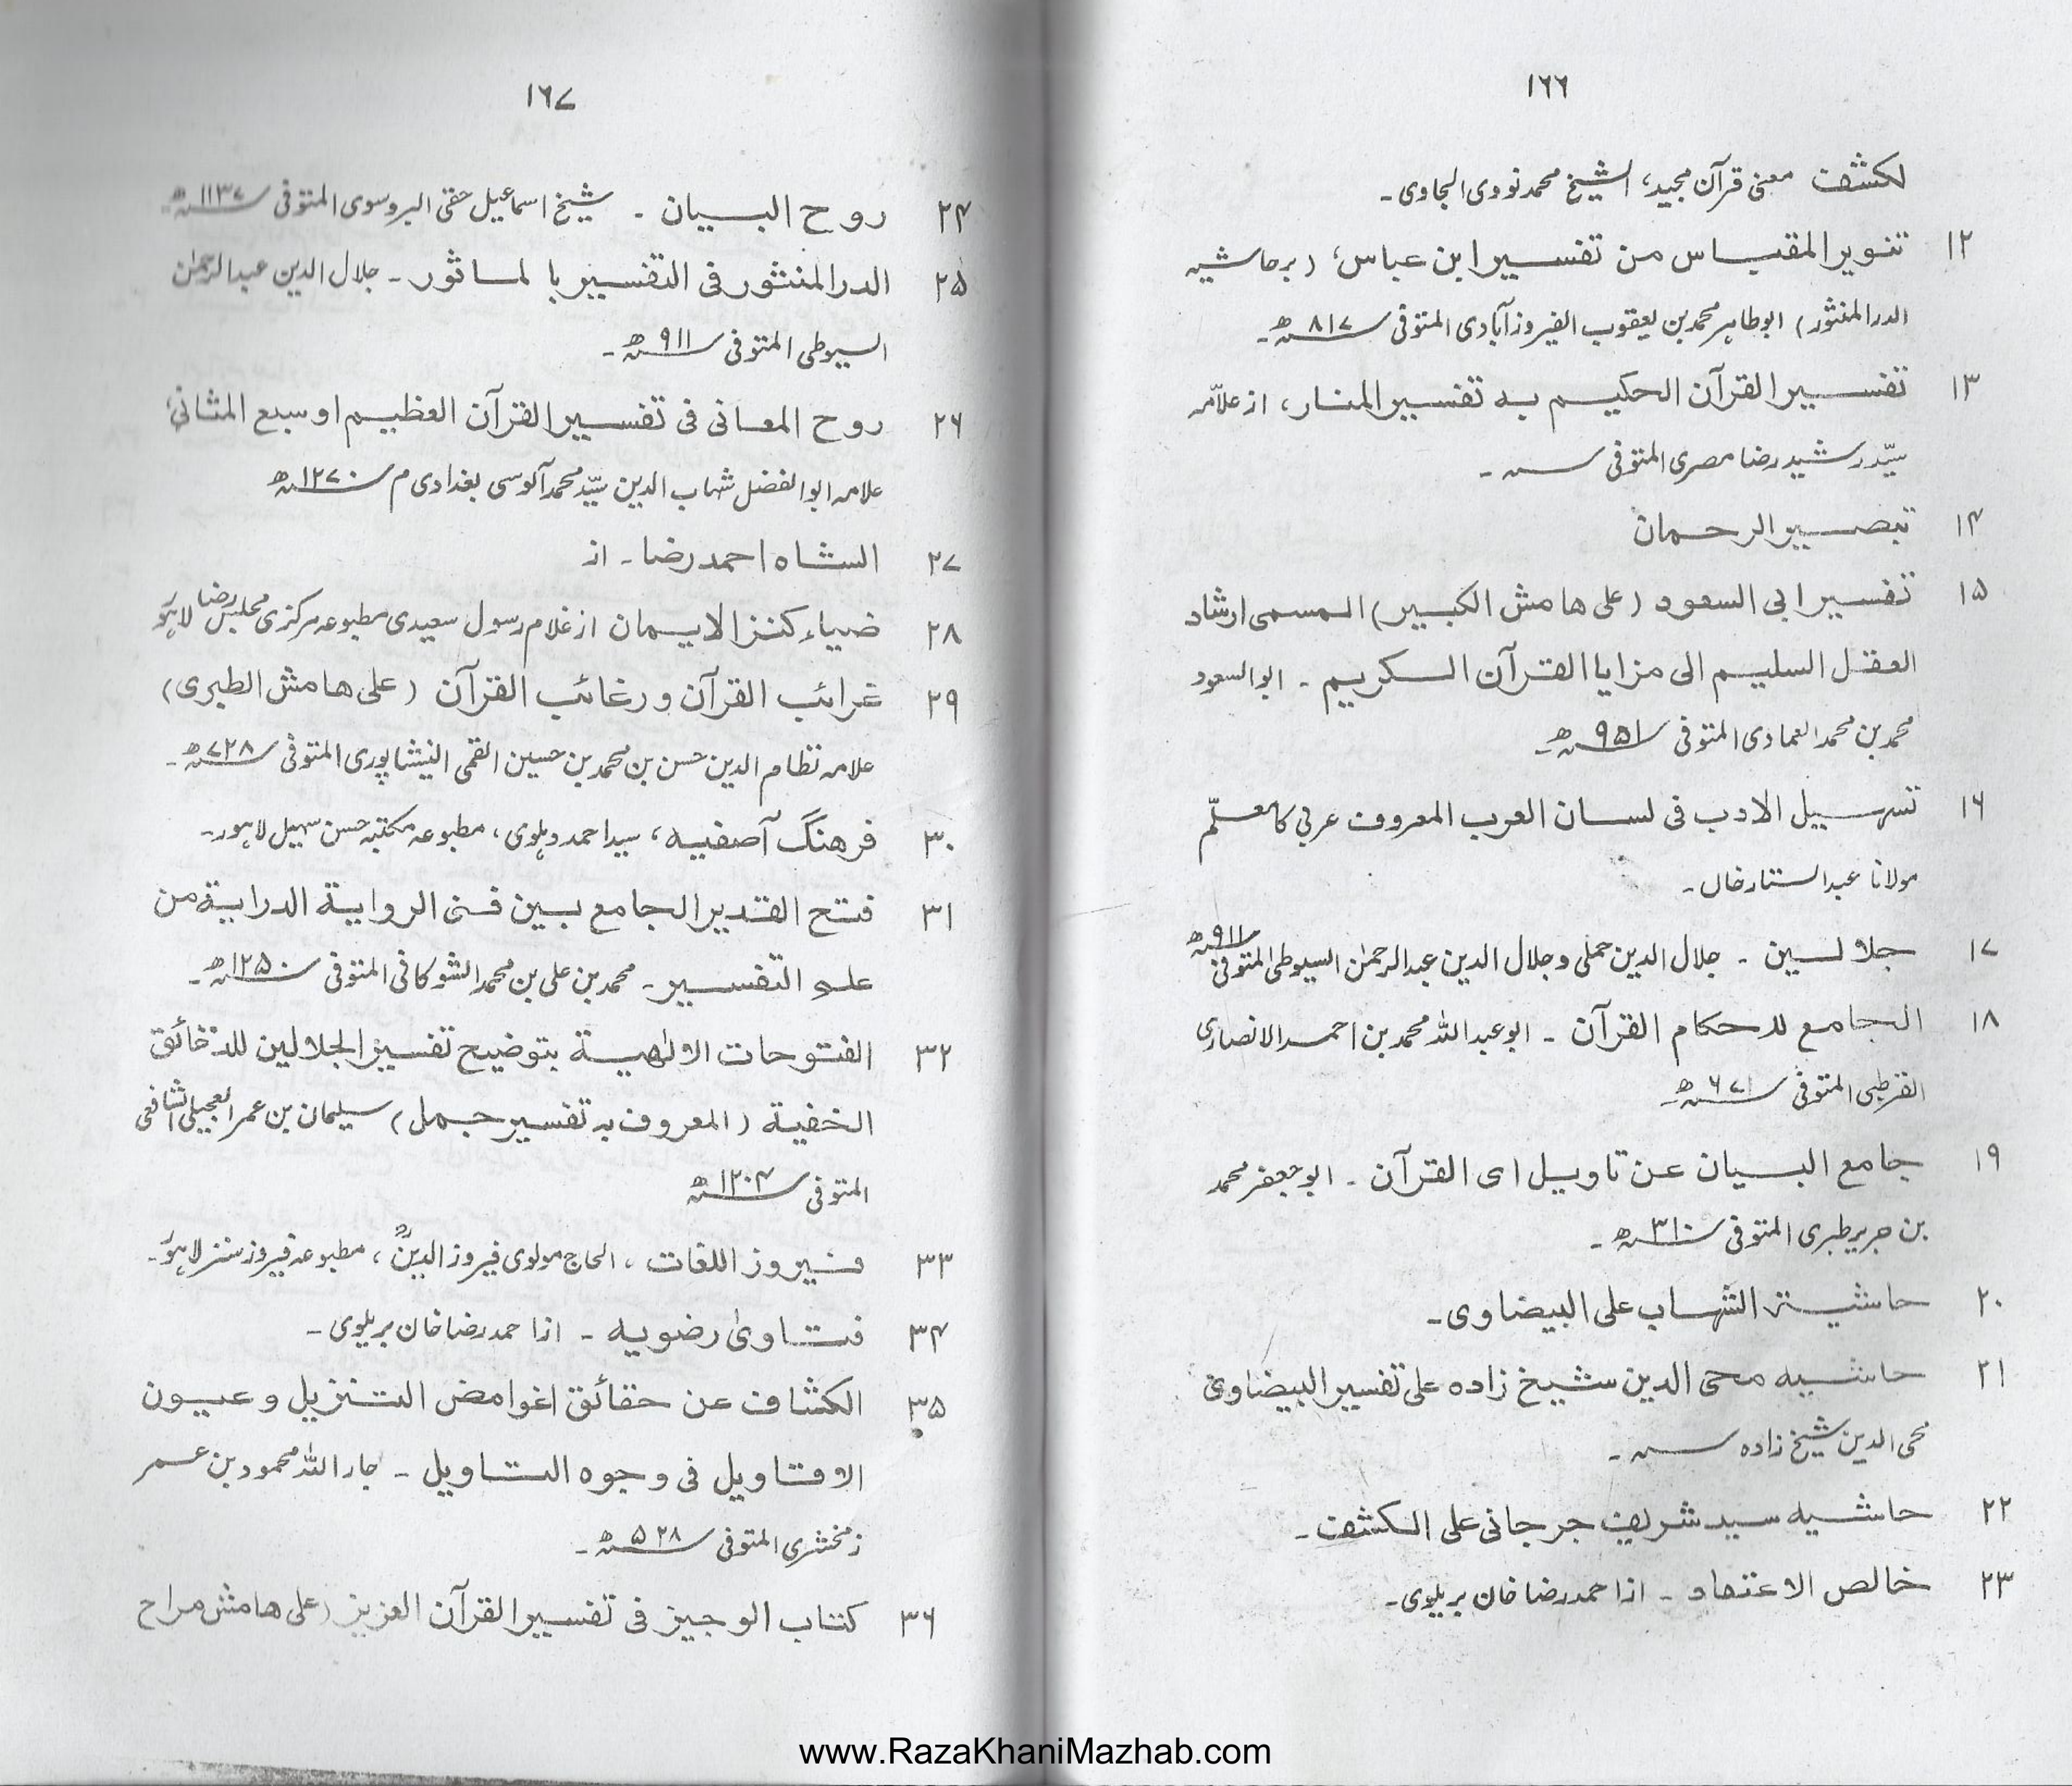 ۱۶۶
لکشف معنی قرآن مجید، الشیخ محمد نووی الجاوی۔
۱۲ تنویر المقباس من تفسیر ابن عباس، (برحاشیہ
الدر المنثور) ابوطاہر محمد بن یعقوب الفیروزآبادی المتوفی ۸۱۷ھ۔
۱۳ تفسیر القرآن الحکیم بہ تفسیر المنار، از علامہ
سیّد رشید رضا مصری المتوفی سنہ ۔
۱۴ تبصیر الرحمان
۱۵ تفسیر ابی السعود (علی ھامش الکبیر) المسمی ارشاد
العقل السلیم الی مزایا القرآن الکریم ۔ ابوالسعود
محمد بن محمد العمادی المتوفی ۹۵۱ھ۔
۱۶ تسہیل الادب فی لسان العرب المعروف عربی کا معلّم
مولانا عبدالستار خاں۔
۱۷ جلالین ۔ جلال الدین حملی و جلال الدین عبدالرحمٰن السیوطی المتوفی ۹۱۱ھ
۱۸ الجامع لاحکام القرآن ۔ ابوعبداللہ محمد بن احمد الانصاری
القرطبی المتوفی ۶۷۱ھ۔
۱۹ جامع البیان عن تاویل ای القرآن ۔ ابوجعفر محمد
بن جریر طبری المتوفی ۳۱۰ھ۔
۲۰ حاشیۃ الشہاب علی البیضاوی۔
۲۱ حاشیہ محی الدین شیخ زادہ علی تفسیر البیضاوی
محی الدین شیخ زادہ سنہ ۔
۲۲ حاشیہ سید شریف جرجانی علی الکشف۔
۲۳ خالص الاعتقاد ۔ از احمد رضا خان بریلوی۔
۱۶۷
۲۴ روح البیان ۔ شیخ اسماعیل حقی البروسوی المتوفی ۱۱۳۷ھ۔
۲۵ الدر المنثور فی التفسیر بالماثور ۔ جلال الدین عبدالرحمٰن
السیوطی المتوفی ۹۱۱ھ۔
۲۶ روح المعانی فی تفسیر القرآن العظیم او سبع المثانی،
علامہ ابوالفضل شہاب الدین سیّد محمد آلوسی بغدادی م ۱۲۷۰ھ
۲۷ الشاہ احمد رضا ۔ از
۲۸ ضیاء کنزالایمان از غلام رسول سعیدی مطبوعہ مرکزی مجلس رضا لاہور
۲۹ غرائب القرآن و رغائب القرآن (علی ھامش الطبری)
علامہ نظام الدین حسن بن محمد بن حسین القمی النیشاپوری المتوفی ۷۲۸ھ۔
۳۰ فرھنگ آصفیہ، سید احمد دہلوی، مطبوعہ مکتبہ حسن سہیل لاہور۔
۳۱ فتح القدیر الجامع بین فنی الروایۃ الدرایۃ من
علم التفسیر ۔ محمد بن علی بن محمد الشوکافی المتوفی ۱۲۵۰ھ۔
۳۲ الفتوحات الالٰھیۃ بتوضیح تفسیر الجلالین للدقائق
الخفیۃ (المعروف بہ تفسیر جمل) سلیمان بن عمر العجیلی الشافعی
المتوفی ۱۲۰۴ھ
۳۳ فیروز اللغات، الحاج مولوی فیروز الدینؒ، مطبوعہ فیروز سنز لاہور۔
۳۴ فتاوٰی رضویہ ۔ از احمد رضا خان بریلوی ۔
۳۵ الکشاف عن حقائق اغوامض التنزیل و عیون
الاقاویل فی وجوہ التاویل ۔ جار اللہ محمود بن عمر
زمخشری المتوفی ۵۲۸ھ۔
۳۶ کتاب الوجیز فی تفسیر القرآن العزیز (علی ھامش مراح
www.RazaKhaniMazhab.com